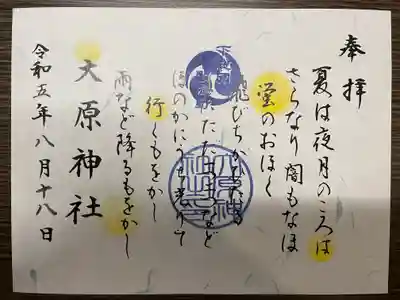 奉拝
夏は夜月のころは
さらなり闇もなほ
蛍のおほく
飛びちがひたる
ただ一つ二つなど
ほのかにうち光りて
行くもをかし
雨など降るもをかし
大原神社
令和五年八月十八日